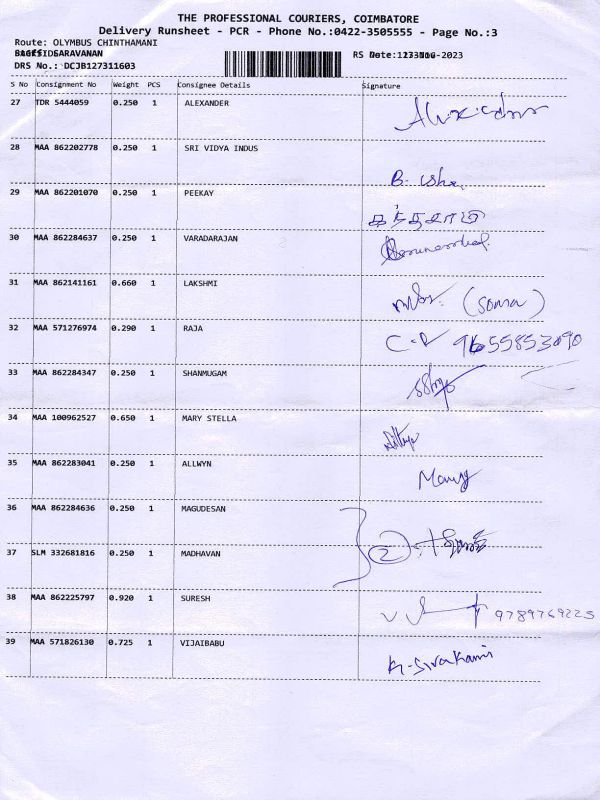 THE PROFESSIONAL COURIERS, COIMBATORE
Delivery Runsheet - PCR - Phone No.:0422-3505555 - Page No.:3
Route: OLYMBUS CHINTHAMANI
SARAVANAN
RS Date: -2023
DRS No.: DCJB127311603
S No Consignment No Weight PCS Consignee Details Signature
27 TDR 5444059 0.250 1 ALEXANDER
28 MAA 862202778 0.250 1 SRI VIDYA INDUS B. Usha
29 MAA 862201070 0.250 1 PEEKAY
30 MAA 862284637 0.250 1 VARADARAJAN
31 MAA 862141161 0.660 1 LAKSHMI (Sonia)
32 MAA 571276974 0.290 1 RAJA 9655853090
33 MAA 862284347 0.250 1 SHANMUGAM
34 MAA 100962527 0.650 1 MARY STELLA
35 MAA 862283041 0.250 1 ALLWYN
36 MAA 862284636 0.250 1 MAGUDESAN
37 SLM 332681816 0.250 1 MADHAVAN 2
38 MAA 862225797 0.920 1 SURESH 9789769225
39 MAA 571826130 0.725 1 VIJAIBABU K. Sivakami